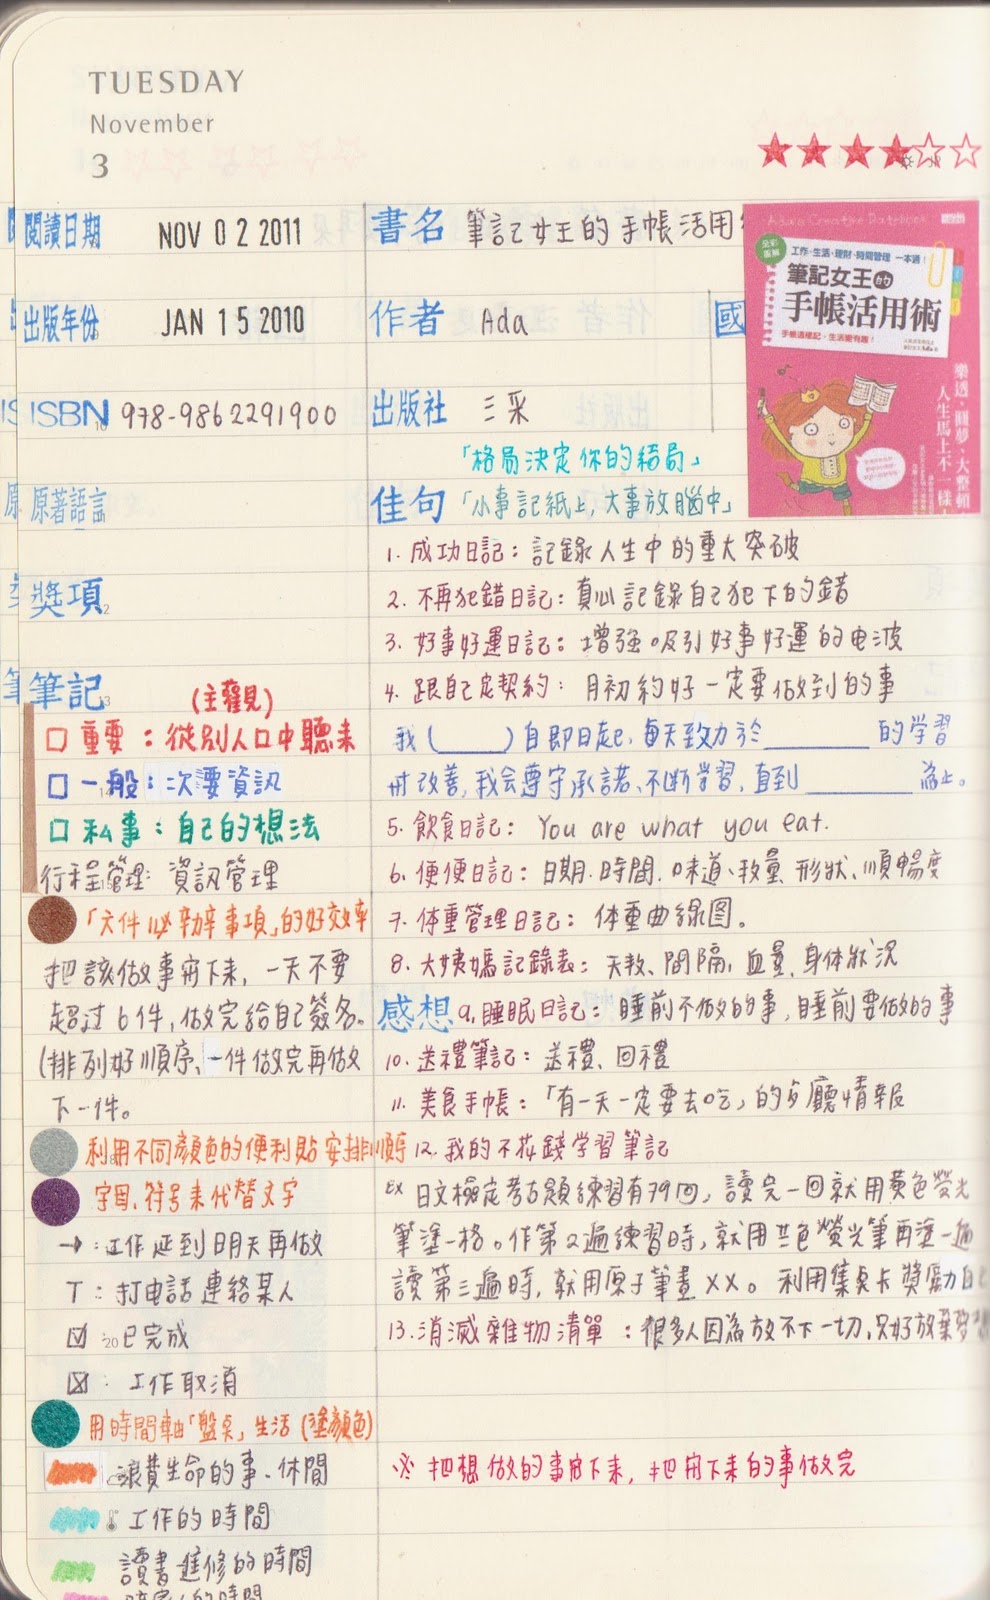 TUESDAY
November
3
閱讀日期 NOV 02 2011
出版年份 JAN 15 2010
ISBN 978-9862291900
原著語言
獎項
筆記
(主觀見)
□ 重要：從別人口中聽來
□ 一般：次要資訊
□ 私事：自己的想法
行程管理: 資訊管理
「六件必辦事項」的好效率
把該做事寫下來，一天不要
超过6件，做完給自己簽名。
(排列好順序、一件做完再做
下一件。
利用不同顏色的便利貼安排順序
字母、符号來代替文字
→：工作延到明天再做
T：打电話連絡某人
☑：已完成
☒：工作取消
用時間軸「盤点」生活(塗顏色)
浪費生命的事、休閒
工作的時間
讀書進修的時間
的時間
書名 筆記女王的手帳活用
作者 Ada
國
出版社 三采
「格局決定你的結局」
佳句 「小事記紙上，大事放腦中」
1. 成功日記：記錄人生中的重大突破
2. 不再犯錯日記：真心記錄自己犯下的錯
3. 好事好運日記：增強吸引好事好運的电波
4. 跟自己定契約：月初約好一定要做到的事
我(____)自即日起，每天致力於________的学習
和改善，我会遵守承諾、不断学習，直到________為止。
5. 飲食日記：You are what you eat.
6. 便便日記：日期、時間、味道、数量、形狀、順暢度
7. 体重管理日記：体重曲線图。
8. 大姨媽記錄表：天数、間隔、血量、身体狀況
感想
9. 睡眠日記：睡前不做的事，睡前要做的事
10. 送禮筆記：送禮、回禮
11. 美食手帳：「有一天一定要去吃」的歺廳情報
12. 我的不花錢学習筆記
Ex 日文檢定考古題練習有79回，讀完一回就用黃色螢光
筆塗一格。作第2遍練習時，就用色螢光筆再塗一遍
讀第三遍時，就用原子筆畫XX。利用集点卡獎勵自
13. 消滅雜物清單：很多人因為放不下一切，只好放棄
※ 把想做的事寫下來，把寫下來的事做完
全彩圖解
工作‧生活‧理財‧時間管理 一本通！
筆記女王的
手帳活用術
手帳這樣記，生活變有趣！
樂透、圓夢、大整頓
人生馬上不一樣